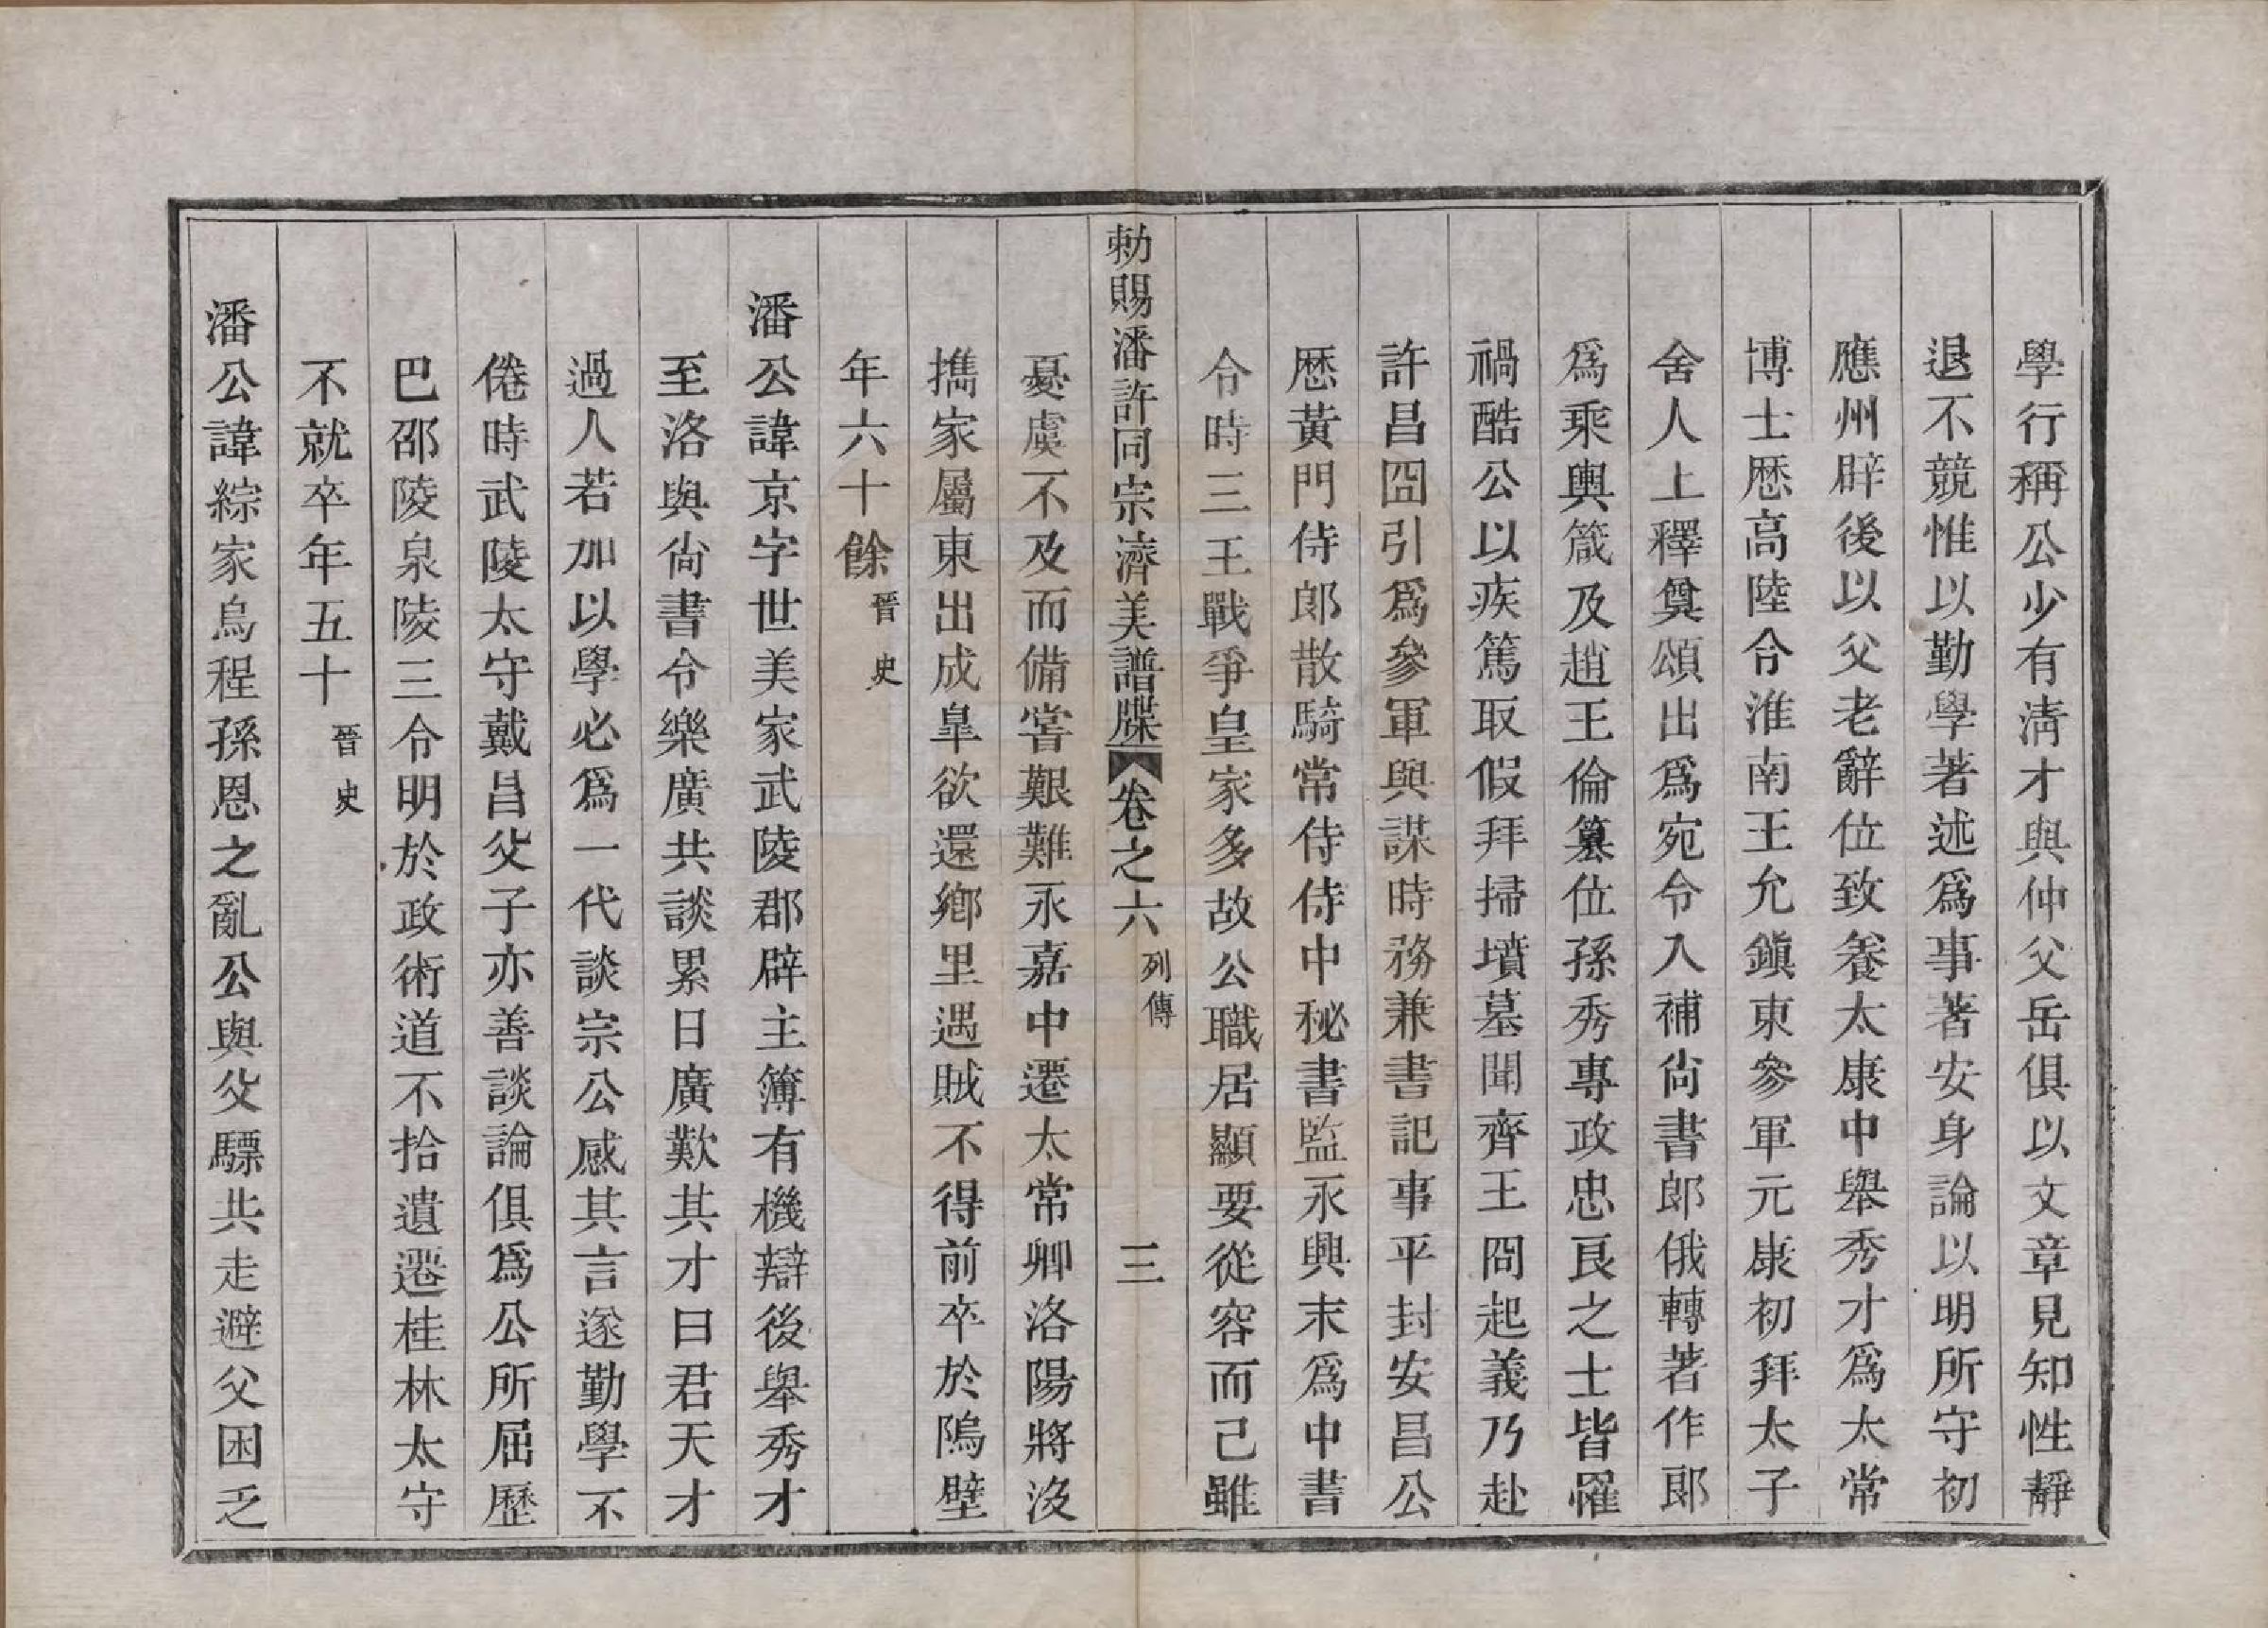 學行稱公少有淸才與仲父岳俱以文章見知性靜
退不競惟以勤學著述爲事著安身論以明所守初
應州辟後以父老辭位致養太康中舉秀才爲太常
博士歷高陸令淮南王允鎭東參軍元康初拜太子
舍人上釋奠頌出爲宛令入補尙書郎俄轉著作郎
爲乘輿箴及趙王倫篡位孫秀專政忠良之士皆罹
禍酷公以疾篤取假拜掃墳墓聞齊王冏起義乃赴
許昌冏引爲參軍與謀時務兼書記事平封安昌公
歷黃門侍郎散騎常侍侍中秘書監永興末爲中書
令時三王戰爭皇家多故公職居顯要從容而己雖
勅賜潘許同宗濟美譜牒 卷之六 列傳 三
憂虞不及而備嘗艱難永嘉中遷太常卿洛陽將沒
攜家屬東出成皐欲還鄉里遇賊不得前卒於隖壁
年六十餘 晉史
潘公諱京字世美家武陵郡辟主簿有機辯後舉秀才
至洛與尙書令樂廣共談累日廣歎其才曰君天才
過人若加以學必爲一代談宗公感其言遂勤學不
倦時武陵太守戴昌父子亦善談論俱爲公所屈歷
巴邵陵泉陵三令明於政術道不拾遺遷桂林太守
不就卒年五十 晉史
潘公諱綜家烏程孫恩之亂公與父驃共走避父困乏